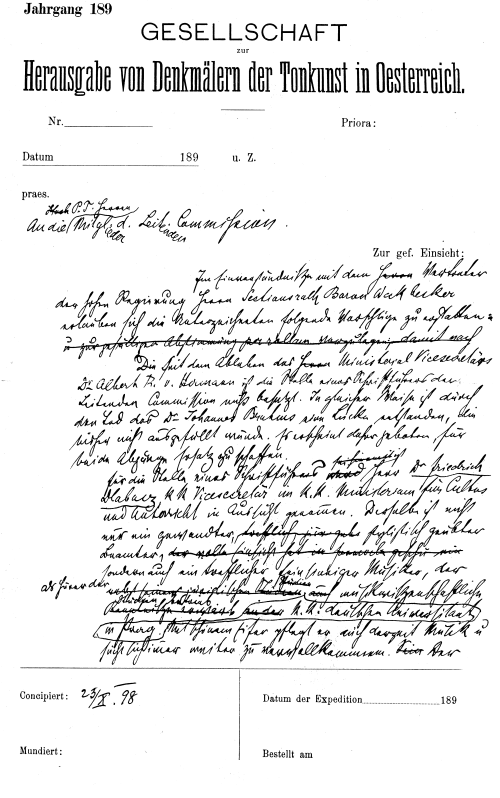 Jahrgang 189
GESELLSCHAFT
zur
Herausgabe von Denkmälern der Tonkunst in Oesterreich.
Nr.
Priora:
Datum 189 u. Z.
praes.
Hoch P. T. Herren
An die Mitglieder d. Leitenden Commission.
Zur gef. Einsicht:
Im Einverständnisse mit dem Herrn Vertreter
der hohen Regierung Herrn Sectionsrath Baron Weckbecker
erlauben sich die Unterzeichneten folgende Vorschläge zu erstatten
u zur gefälligen Abstimmung vorzulegen, damit nach
Die seit dem Ableben des Herrn Ministerial Vicesecretärs
Dr Albert R. v. Hermann ist die Stelle eines Schriftführers der
Leitenden Commission nicht besetzt. In gleicher Weise ist durch
den Tod des Dr Johannes Brahms eine Lücke entstanden, die
bisher nicht ausgefüllt wurde. Es erscheint daher geboten, für
beide Abgänge Ersatz zu schaffen.
Für die Stelle eines Schriftführers wird Herr Dr Friedrich
Dlabač K. K. Vicesecretär im K. K. Ministerium für Cultus
und Unterricht in Aussicht genommen. Derselbe ist nicht
nur ein gewandter, stylistisch geübter
Beamter,
sondern auch ein trefflicher feinsinniger Musiker, der
als Hörer der
Studien musikwissenschaftliche
an der K. K. deutschen Universität
in Prag. Mit schönem Eifer pflegt er auch derzeit Musik u
sucht sich immer weiter zu vervollkommnen. Der
Concipiert: 23/X. 98
Datum der Expedition 189
Mundiert:
Bestellt am